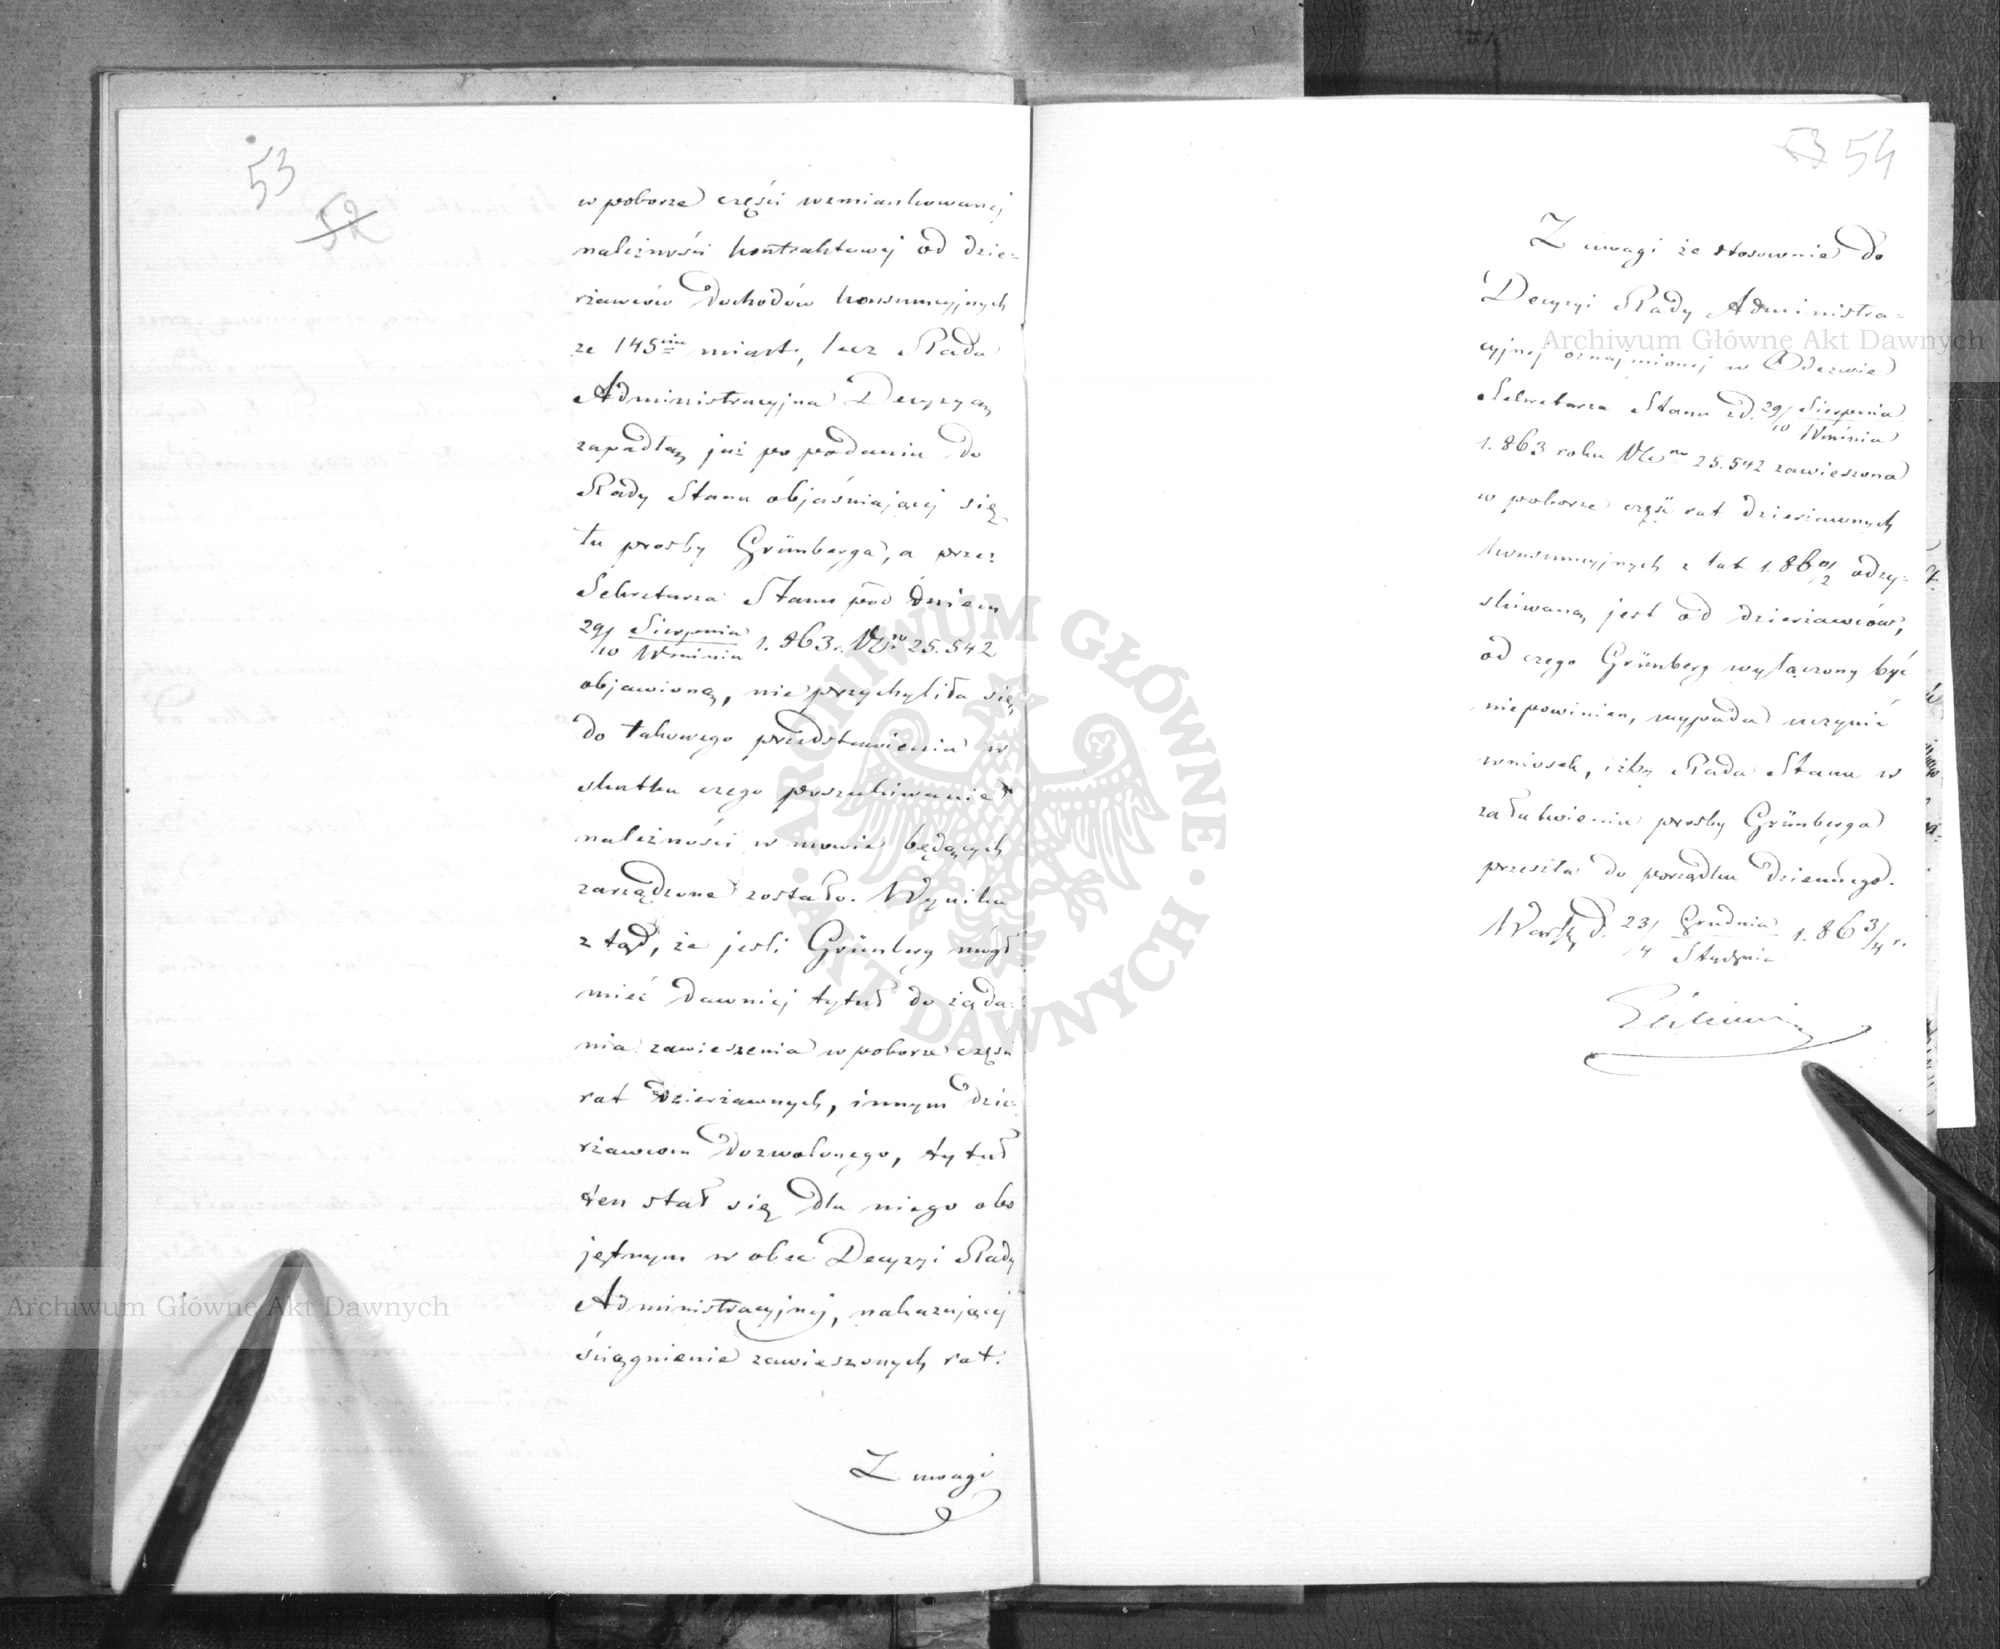 53
52
w poborze części wzmiankowanej
należności kontraktowej od dzie-
rżawców dochodów konsumcyjnych
ze 145ciu miast, lecz Rada
Administracyjna Decyzyą
zapadłą już po podaniu do
Rady Stanu objaśniającej się
tu prośby Grünberga, a przez
Sekretarza Stanu pod dniem
29/10 Sierpnia/Września 1.863 r. No 25.542
objawioną, nie przychyliła się
do takowego przedstawienia w
skutku czego poszukiwanie
należności w mowie będących
zarządzone zostało. Wynika
z tąd, że jeśli Grünberg mógł
mieć dawniej tytuł do żąda-
nia zawieszenia w poborze części
rat dzierżawnych, innym dzie-
rżawcom dozwolonego, tytuł
ten stał się dla niego obo
jętnym w obec Decyzyi Rady
Administracyjnej, nakazującej
ściągnienie zawieszonych rat.
Z uwagi
53 54
Z uwagi że stosownie do
Decyzyi Rady Administra-
cyjnej oznajmionej w Odezwie
Sekretarza Stanu z d. 29/10 Sierpnia/Września
1.863 roku No 25.542 zawieszona
w poborze część rat dzierżawnych
konsumcyjnych z lat 1.86 01/2 odzy-
skiwaną jest od dzierżawców,
od czego Grünberg wyłączony być
niepowinien, wypada uczynić
wniosek, iżby Rada Stanu w
załatwieniu prośby Grünberga
przeszła do porządku dziennego.
Warsz. d. 23/4 Grudnia/Stycznia 1.86 3/4 r.
Archiwum Główne Akt Dawnych
Archiwum Główne Akt Dawnych
ARCHIWUM GŁÓWNE
AKT DAWNYCH